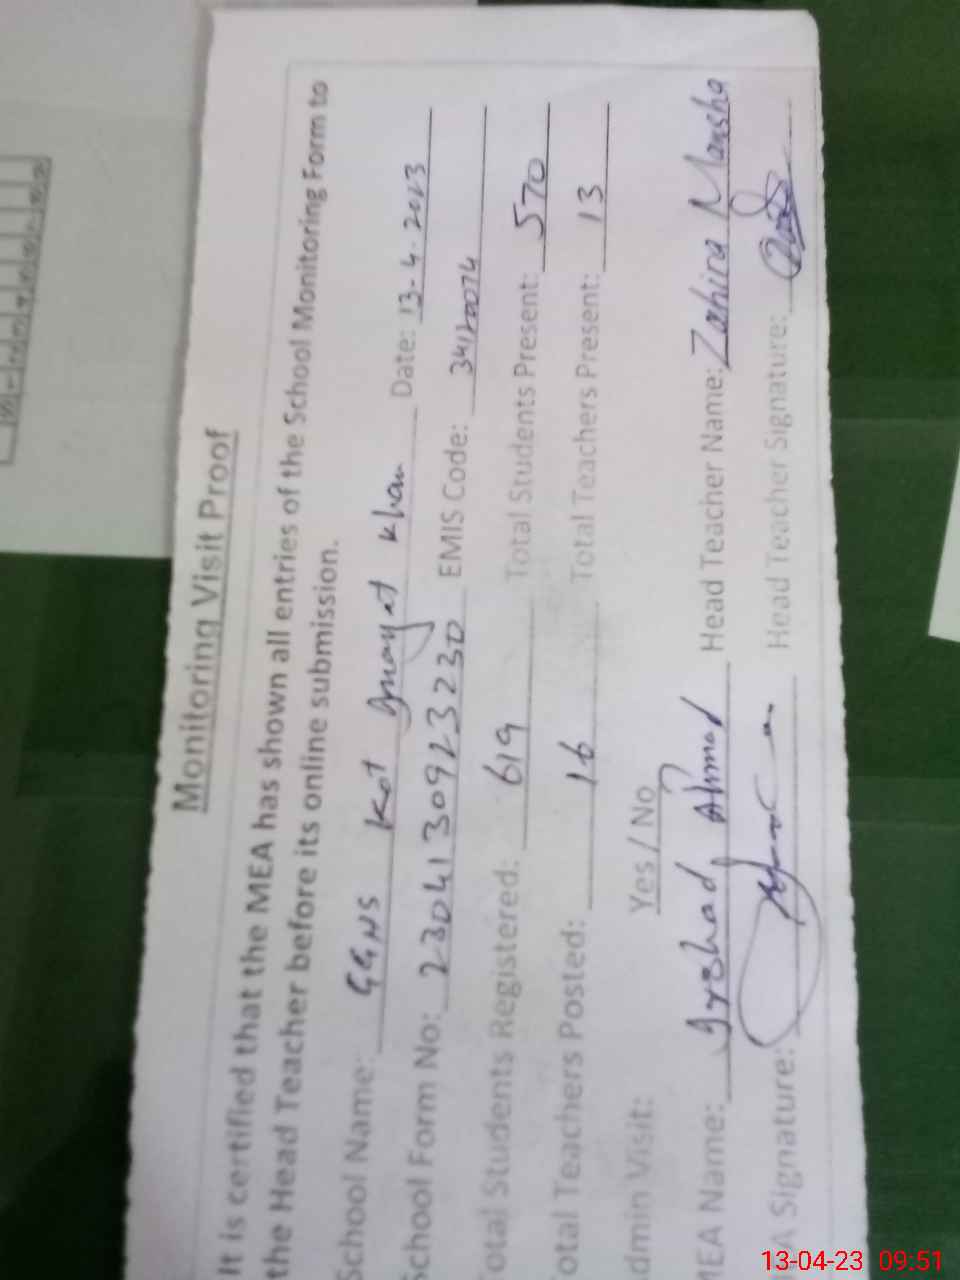 Monitoring Visit Proof
It is certified that the MEA has shown all entries of the School Monitoring Form to
the Head Teacher before its online submission.
School Name: GGNS Kot Inayat Khan Date: 13-4-2023
School Form No: 230413092323 0 EMIS Code: 34120074
Total Students Registered: 619 Total Students Present: 570
otal Teachers Posted: 16 Total Teachers Present: 13
dmin Visit: Yes / No
MEA Name: Irshad Ahmad Head Teacher Name: Zahira Mansha
A Signature: Head Teacher Signature:
13-04-23 09:51